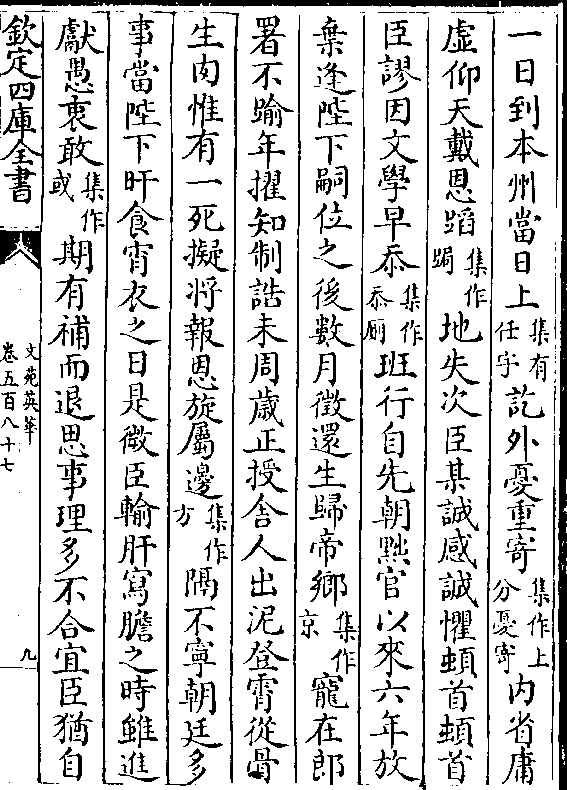 一日到本州當日上集有任字訖外憂重寄集作上分憂寄内省庸
虚仰天戴恩蹈集作跼地失次臣某誠感誠懼頓首頓首
臣謬因文學早忝集作忝廁班行自先朝黜官以來六年放
棄逢陛下嗣位之後數月徵還生歸帝鄉集作京寵在郎
署不踰年擢知制誥未周歲正授舎人出泥登霄從骨
生肉惟有一死擬將報恩旋屬邊集作方隅不寧朝廷多
事當陛下旰食宵衣之日是微臣輸肝寫膽之時雖進
獻愚衷敢集作或期有補而退思事理多不合宜臣猶自
欽定四庫全書
文苑英華
卷五百八十七
九